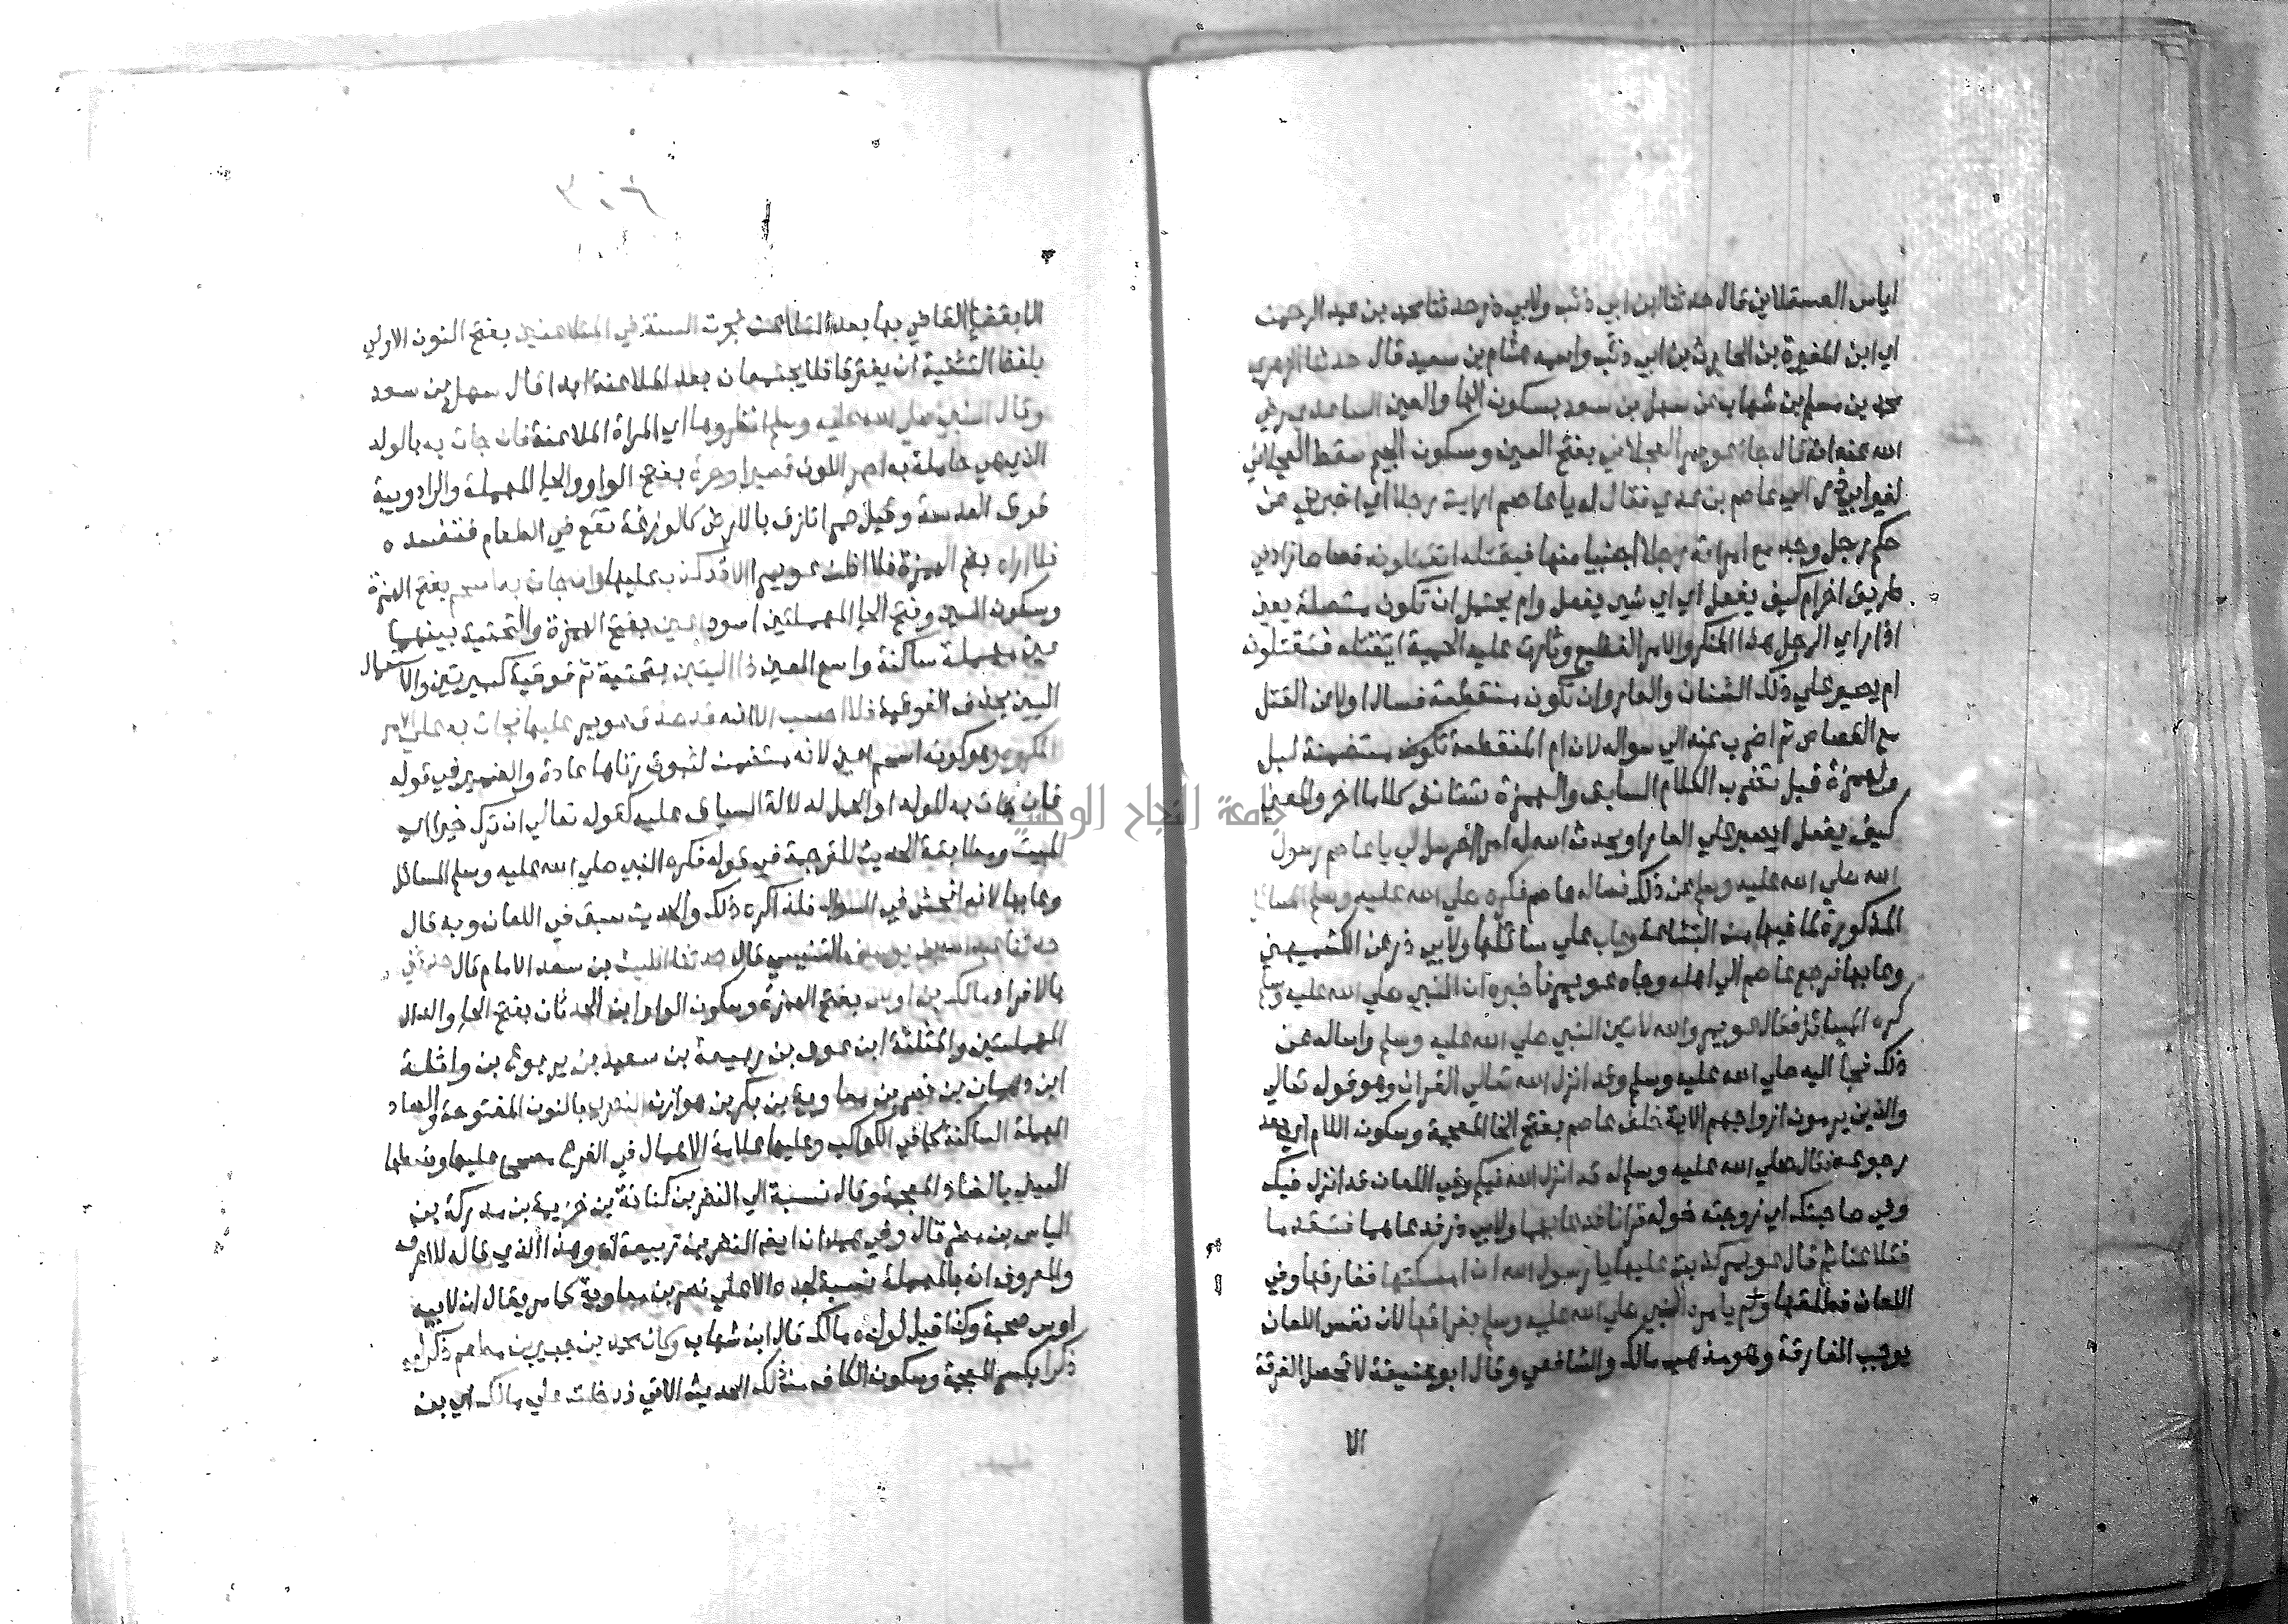 اياس العسقلاني قال حدثنا ابن ابي ذئب ولابي ذر حدثنا محمد بن عبد الرحمن
اي ابن المغيرة بن الحارث بن ابي ذئب واسمه هشام بن سعيد قال حدثنا الزهري
محمد بن مسلم بن شهاب عن سهل بن سعد بسكون الها والعين الساعدي رضي
الله عنه انه قال جا عويمر العجلاني بفتح العين وسكون الجيم سقط العجلاني
لغير ابي ذر الي عاصم بن عدي فقال له يا عاصم ارايت رجلا اي اخبرني عن
حكم رجل وجد مع امراته رجلا اجنبيا منها فيقتله اتقتلونه قصاصا زاد في
طريق اخرام كيف يفعل اي اي شي يفعل وام يحتمل ان تكون متصلة يعني
اذا راي الرجل هذا المنكر والامر الفظيع وثارت عليه الحمية ايقتله فتقتلونه
ام يصبر علي ذلك الشنان والعار وان تكون منقطعة فسال اولا عن القتل
مع القصاص ثم اضرب عنه الي سواله لان ام المنقطعة تكون متضمنة لبل
والهمزة فبل تضرب الكلام السابق والهمزة تستانف كلاما اخر والمعني
كيف يفعل ايصبر علي العار او يحدث الله له امرا اخر سل لي يا عاصم رسول
الله صلي الله عليه وسلم عن ذلك فساله عاصم فكره صلي الله عليه وسلم المسائل
المذكورة لما فيها من البشاعة وعاب علي سائلها ولابي ذر عن الكشميهني
وعابها فرجع عاصم الي اهله وجاه عويمر فاخبره ان النبي صلي الله عليه وسلم
كره المسائل فقال عويمر والله لاتين النبي صلي الله عليه وسلم واساله عن
ذلك فجا اليه صلي الله عليه وسلم وقد انزل الله تعالي القران وهو قوله تعالي
والذين يرمون ازواجهم الاية خلف عاصم بفتح الخا المعجمة وسكون اللام اي بعد
رجوعه فقال صلي الله عليه وسلم له قد انزل الله فيكم وفي اللعان قد انزل فيك
وفي صاحبتك اي زوجته خوله قرانا فدعا بهما ولابي ذر فدعاهما فتقدما
فتلاعنا ثم قال عويمر كذبت عليها يا رسول الله ان امسكتها ففارقها وفي
اللعان فطلقها ولم يامره النبي صلي الله عليه وسلم بفراقها لان نفس اللعان
يوجب المفارقة وهو مذهب مالك والشافعي وقال ابو حنيفة لا تحصل الفرقة
الا
٣٠٤
الا بقضا القاضي بها بعد التلاعن فجرت السنة في المتلاعنين بفتح النون الاولي
بلفظ التثنية ان يفترقا فلا يجتمعان بعد الملاعنة ابدا قال سهل بن سعد
وقال النبي صلي الله عليه وسلم انظروها اي المراة الملاعنة فان جات به بالولد
الذي هي حاملة به احمر اللون قصيرا وحرة بفتح الواو والحا المهملة والرا دويبة
فوق العدسة وقيل حمرا تلزق بالارض كالوزغة تقع في الطعام فتفسده
فلا اراه بضم الهمزة فلا اظن عويمرا الا قد كذب عليها وان جات به اسحم بفتح الهمزة
وسكون السين وفتح الحا المهملتين اسود اعين بفتح الهمزة والتحتية بينهما
عين مهملة ساكنة واسع العين ذا اليتين بتحتية ثم فوقية كبيرتين والاستعمال
اليين بحذف الفوقية فلا احسب الا انه قد صدق عويمر عليها فجات به علي الامر
المكروه وهو كونه اسحم اعين لانه متضمن لثبوت زناها عادة والضمير في قوله
فان جات به للولد او الحمل لدلالة السياق عليه كقوله تعالي ان ترك خيرا اي
الميت ومطابقة الحديث للترجمة في قوله فكره النبي صلي الله عليه وسلم المسائل
وعابها لانه افحش في السوال فلذا كره ذلك والحديث سبق في اللعان وبه قال
حدثنا عبد الله بن يوسف التنيسي قال حدثنا الليث بن سعد الامام قال حدثني
بالافراد مالك بن اوس بفتح الهمزة وسكون الواو ابن الحدثان بفتح الحا والدال
المهملتين والمثلثة ابن عوف بن ربيعة بن سعيد بن يربوع بن واثلة
ابن دهمان بن نصر بن معاوية بن بكر بن هوازن النصري بالنون المفتوحة والصاد
المهملة الساكنة كما في الكواكب وعليها علامة الاهمال في الفرع مصحح عليها وضبطها
العيني بالضاد المعجمة وقال نسبة الي النضر بن كنانة بن خزيمة بن مدركة بن
الياس بن مضر قال وفي همدان ايضا النضر بن ربيعة اه وهذا الذي قاله لا اعرفه
والمعروف انه بالمهملة نسبة لجده الاعلي نصر بن معاوية كما مر يقال ان لابيه
اوس صحبة وكذا قيل لولده مالك قال ابن شهاب وكان محمد بن جبير بن مطعم ذكر لي
ذكرا بكسر المعجمة وسكون الكاف من ذلك الحديث الاتي فدخلت علي مالك اي بن
جامعة النجاح الوطنية